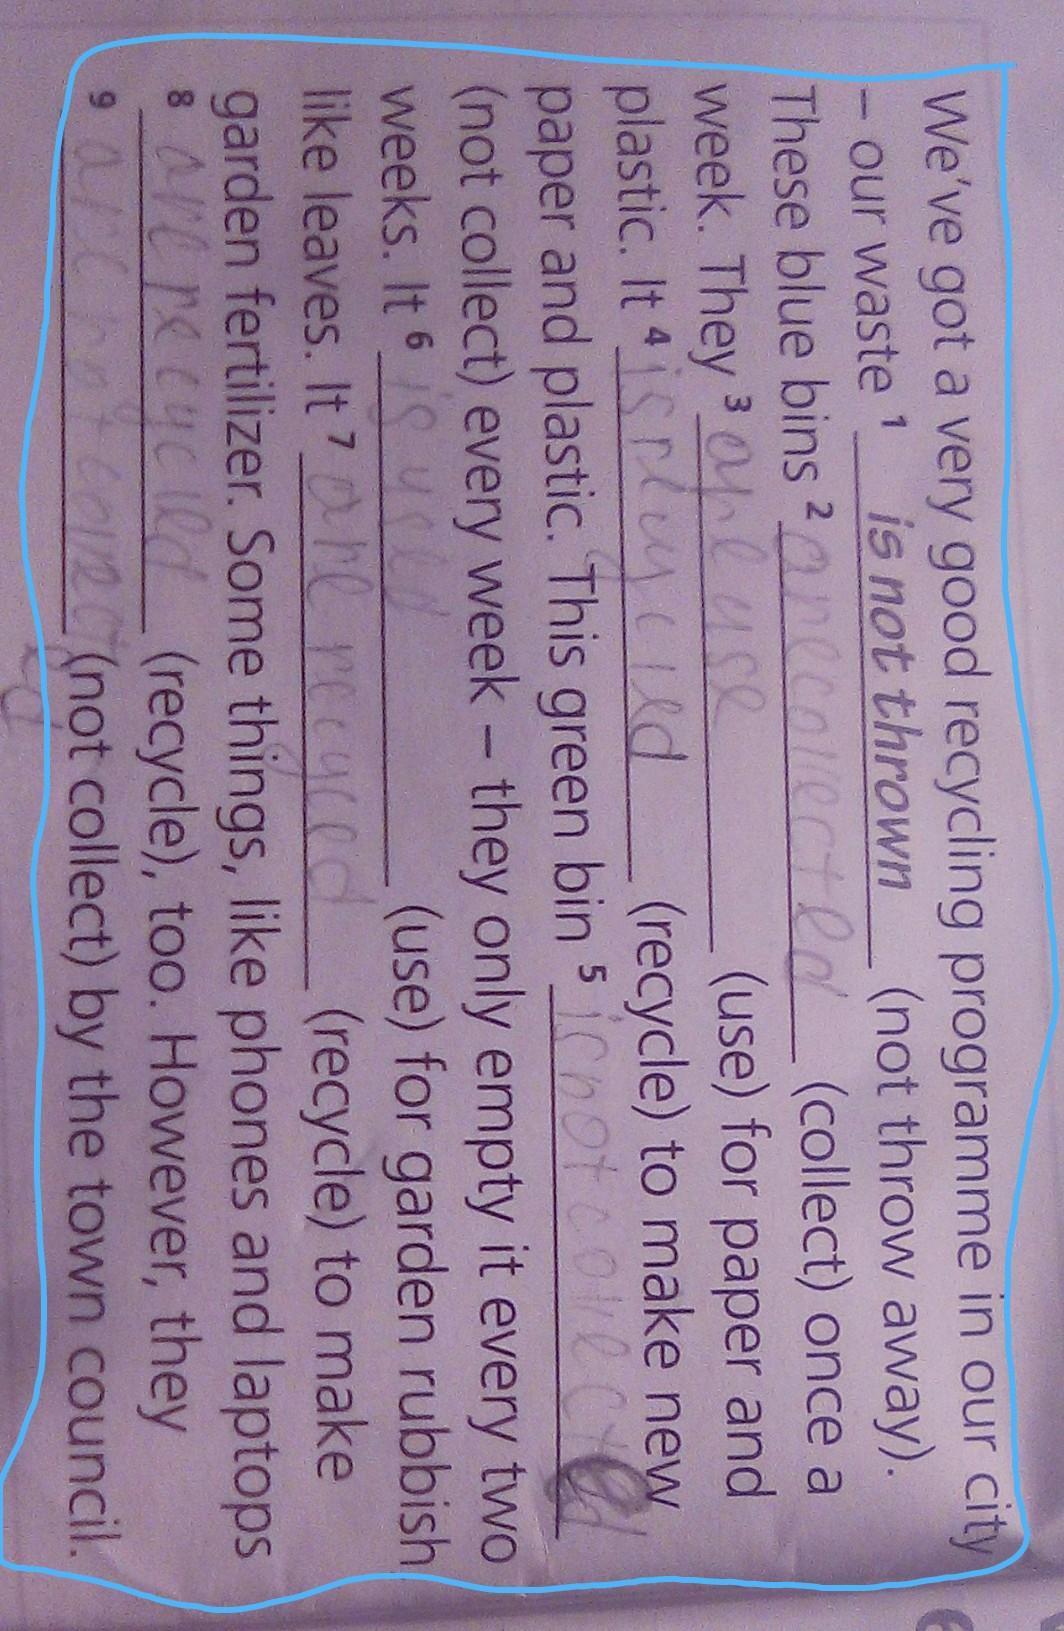 We've got a very good recycling programme in our city
– our waste 1 is not thrown (not throw away).
These blue bins 2 are collected (collect) once a
week. They 3 are use (use) for paper and
plastic. It 4 is (recycle) to make new
paper and plastic. This green bin 5 is not collected
(not collect) every week – they only empty it every two
weeks. It 6 is used (use) for garden rubbish
like leaves. It 7 are recyced (recycle) to make
garden fertilizer. Some things, like phones and laptops
8 are recycled (recycle), too. However, they
9 are not (not collect) by the town council.